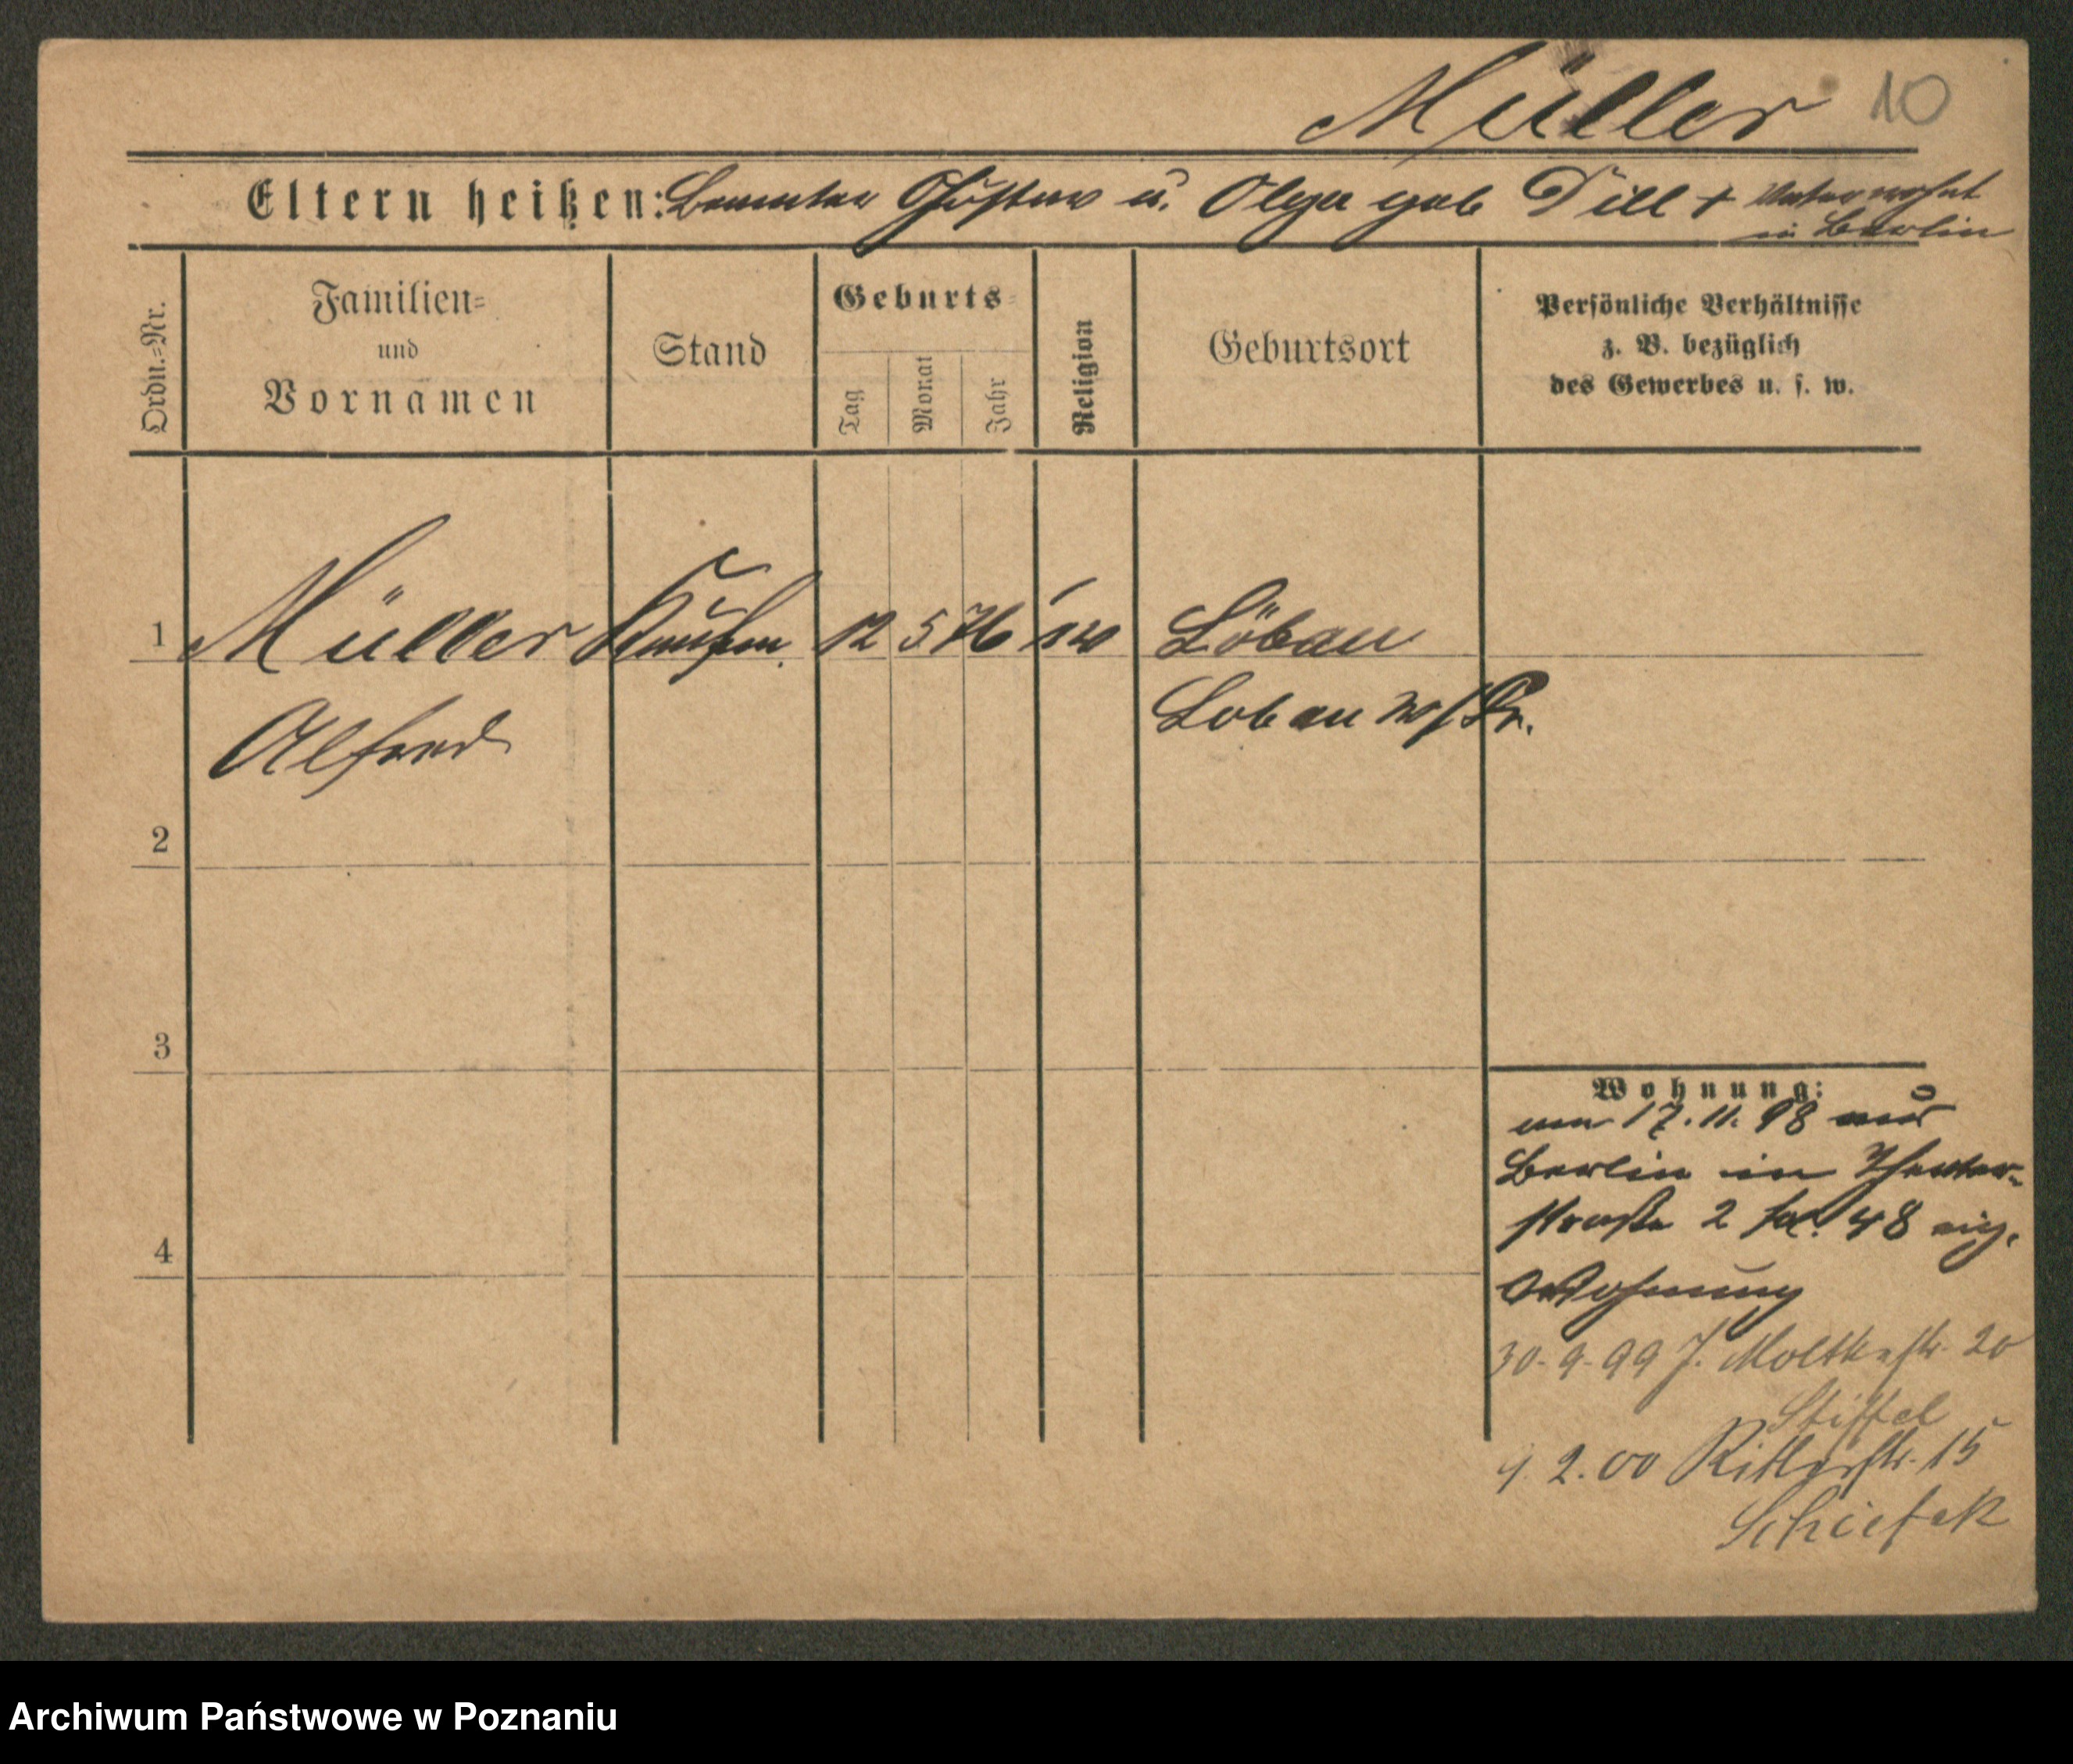 Müller 10
Eltern heißen: Beamter Gustav u. Olga geb Dill + Vater wohnt
in Berlin
Ordn.=Nr.
Familien=
und
Vornamen
Stand
Geburts=
Tag
Monat
Jahr
Religion
Geburtsort
Persönliche Verhältnisse
z. B. bezüglich
des Gewerbes u. s. w.
1 Müller Kaufm. 12 5 76 Löbau
Alfred Lobau W/Pr.
2
3
4
Wohnung:
am 17.11.98 aus
Berlin in Theater-
straße 2 48 eig.
Wohnung
30-9-99 J. Moltkestr. 20
Stiffel
9.2.00 Ritterstr. 15
Schiefek
Archiwum Państwowe w Poznaniu